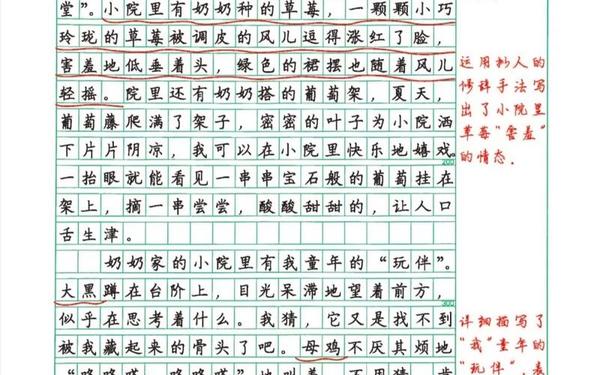 堂”。小院里有奶奶种的草莓，一颗颗小巧
玲珑的草莓被调皮的风儿逗得涨红了脸，
害羞地低垂着头，绿色的裙摆也随着风儿
轻摇。院里还有奶奶搭的葡萄架，夏天，
葡萄藤爬满了架子，密密的叶子为小院洒
下片片阴凉，我可以在小院里快乐地嬉戏。
200
一抬眼就能看见一串串宝石般的葡萄挂在
架上，摘一串尝尝，酸酸甜甜的，让人口
舌生津。
奶奶家的小院里有我童年的“玩伴”。
大黑蹲在台阶上，目光呆滞地望着前方，
300
似乎在思考着什么。我猜，它又是找不到
被我藏起来的骨头了吧。母鸡不厌其烦地
运用拟人的
修辞手法写
出了小院里
草莓“害羞”
的情态．
详细描写了
“我”童年的
“玩伴”，表